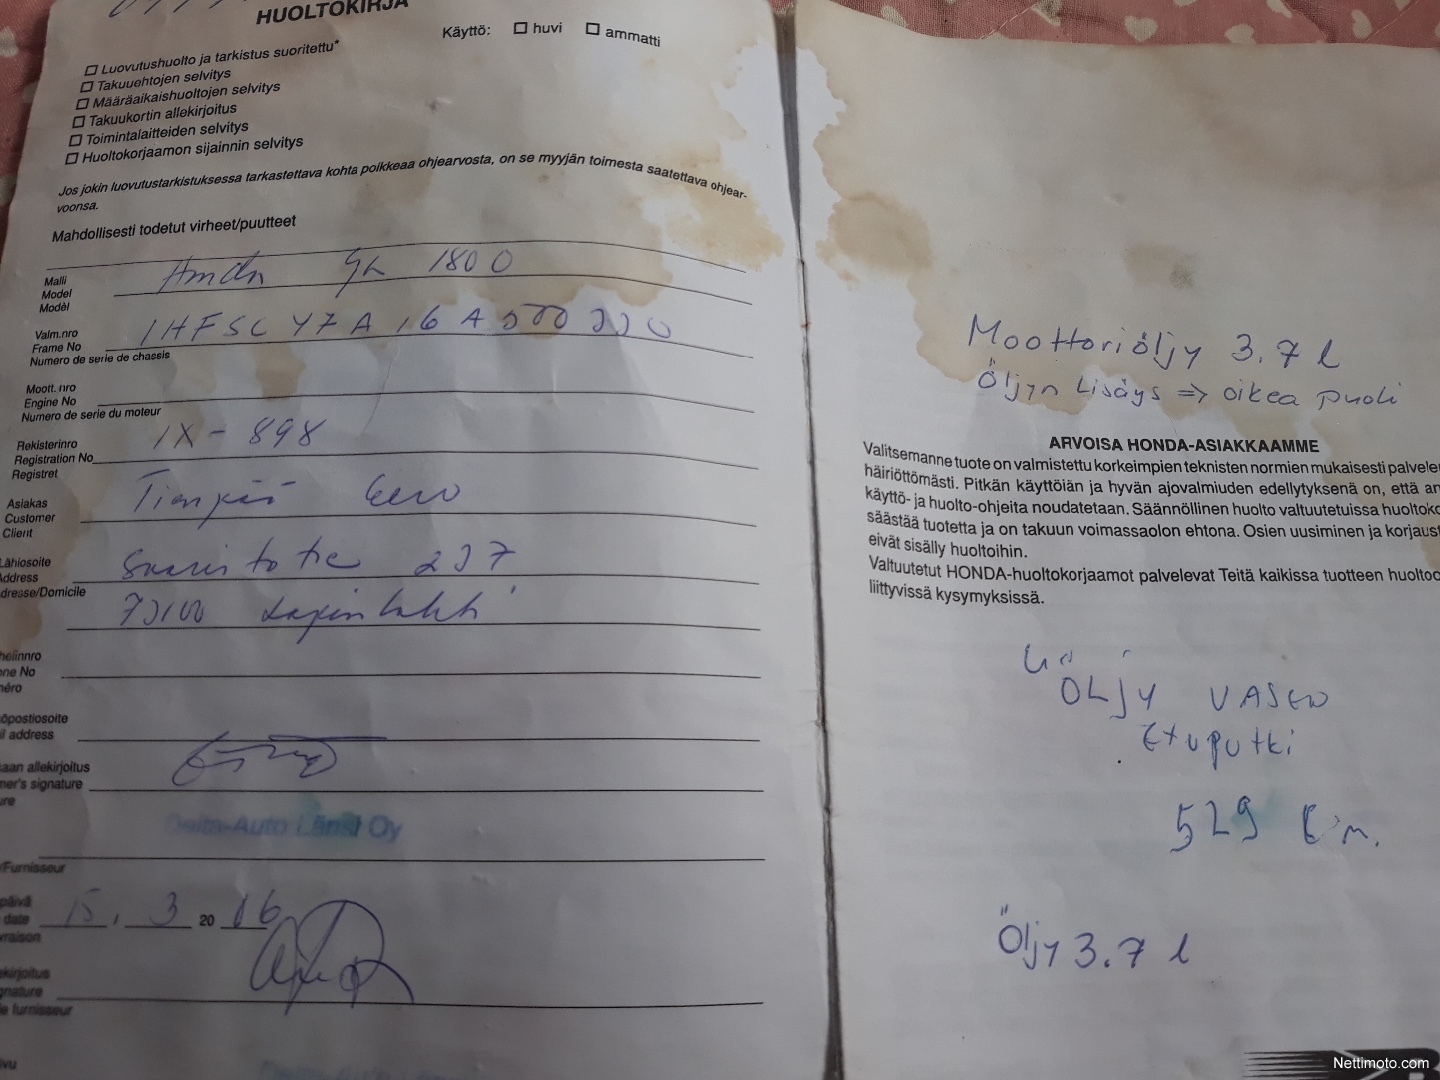 HUOLTOKIRJA
Käyttö: huvi ammatti
Luovutushuolto ja tarkistus suoritettu*
Takuuehtojen selvitys
Määräaikaishuoltojen selvitys
Takuukortin allekirjoitus
Toimintalaitteiden selvitys
Huoltokorjaamon sijainnin selvitys
Jos jokin luovutustarkistuksessa tarkastettava kohta poikkeaa ohjearvosta, on se myyjän toimesta saatettava ohjear-
voonsa.
Mahdollisesti todetut virheet/puutteet
Malli
Model
Modèl
Honda GL 1800
Valm.nro
Frame No
Numero de serie de chassis
Moott. nro
Engine No
Numero de serie du moteur
Rekisterinro
Registration No
Registret
IX-898
Asiakas
Customer
Client
Eero
Lähiosoite
Address
dresse/Domicile
Saaristotie 237
73100 Lapinlahti
elinnro
one No
néro
öpostiosoite
il address
aan allekirjoitus
mer's signature
ure
Delta-Auto Länsi Oy
/Furnisseur
päivä
date
vraison
15. 3 2006
ekirjoitus
gnature
e furnisseur
Moottoriöljy 3.7 l
Öljyn Lisäys => oikea puoli
ARVOISA HONDA-ASIAKKAAMME
Valitsemanne tuote on valmistettu korkeimpien teknisten normien mukaisesti palvele
häiriöttömästi. Pitkän käyttöiän ja hyvän ajovalmiuden edellytyksenä on, että an
käyttö- ja huolto-ohjeita noudatetaan. Säännöllinen huolto valtuutetuissa huoltoko
säästää tuotetta ja on takuun voimassaolon ehtona. Osien uusiminen ja korjaust
eivät sisälly huoltoihin.
Valtuutetut HONDA-huoltokorjaamot palvelevat Teitä kaikissa tuotteen huoltoo
liittyvissä kysymyksissä.
ÖLJY VASEN
Etuputki
529
Öljy 3.7 l
Nettimoto.com